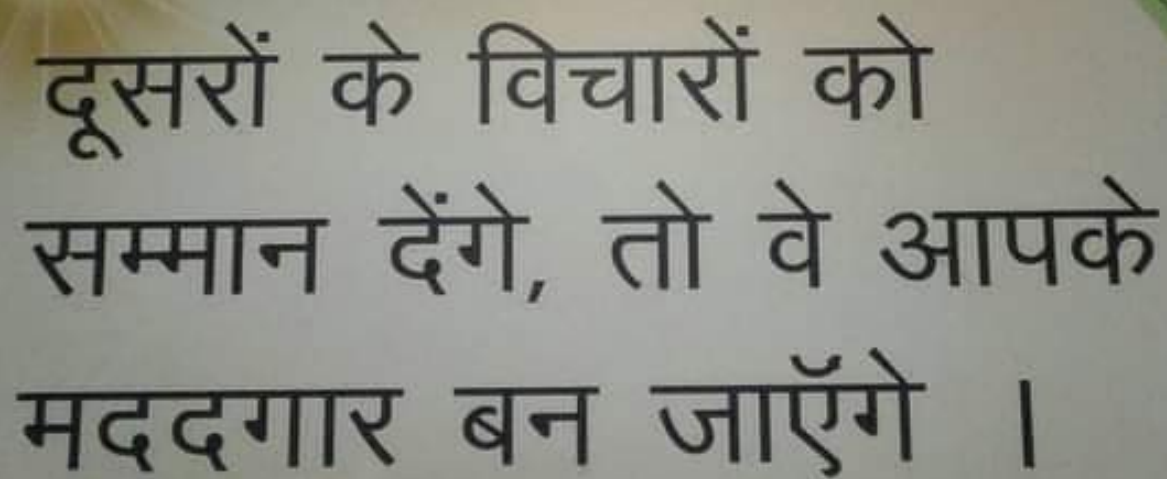 दूसरों के विचारों को
सम्मान देंगे, तो वे आपके
मददगार बन जाऍगे ।